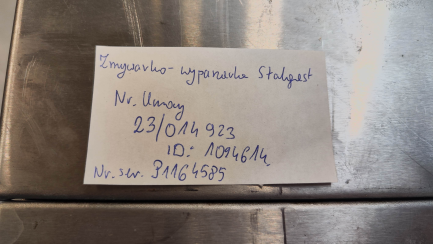 Zmywarko-wyparzarka Stalgast
Nr. Umowy
23/014923
ID: 1094614
Nr. ser. 31164585